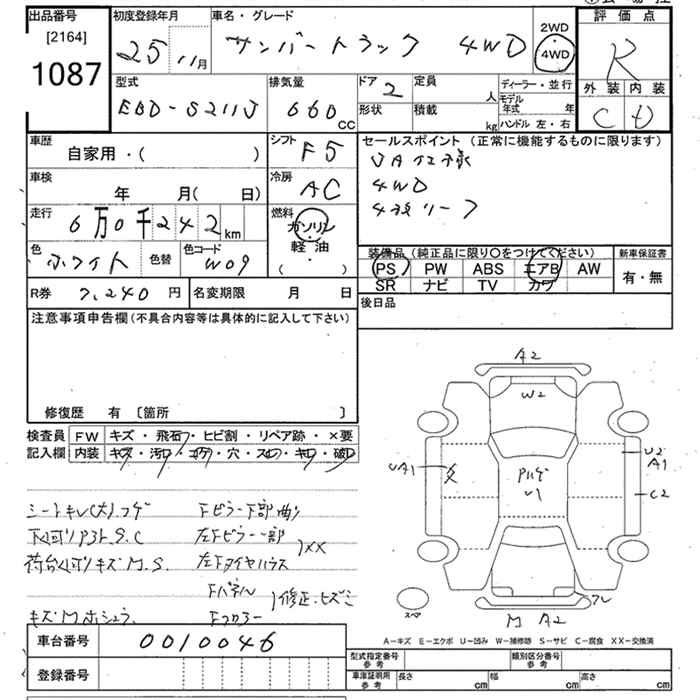 出品番号 初度登録年月 車名・グレード 2WD 評価点
[2164] 25 11月 サンバートラック 4WD ・ 4WD R
1087
型式 排気量 ドア 2 定員 人 ディーラー・並行 外装 内装
EBD-S211J 660 CC 形状 積載 kg モデル年式 年 C D
ハンドル 左・右
車歴 自家用・( ) シフト F5 セールスポイント (正常に機能するものに限ります)
JA仕様
車検 年 月( 日) 冷房 AC 4WD
走行 6万0千242km 燃料 ガソリン・軽油 ( )
4枚リーフ
色 ホワイト 色替 色コード W09 装備品 (純正品に限り○をつけてください) 新車保証書
PS PW ABS エアB AW 有・無
SR ナビ TV カワ
R券 7,240円 名変期限 月 日 後日品
注意事項申告欄(不具合内容等は具体的に記入して下さい)
修復歴 有 [箇所 ]
検査員 FW キズ・飛石・ヒビ割・リペア跡・×要
記入欄 内装 キズ・汚レ・コゲ・穴・スレ・キレ・破レ
シートキレ(大)、コゲ Fピラー下部曲り
下回りP3ト、S、C 左Fピラー一部
荷台くぼりキズM、S、 左Fタイヤハウス )XX
Fパネル
キズM Fフロアー )修正、ヒズミ
A2
W2
UA1 U2
A1
C2
U1
スペア
M A2
車台番号 0010046 A-キズ E-エクボ U-凹み W-補修跡 S-サビ C-腐食 XX-交換済
登録番号 型式指定番号 参考 類別区分番号 参考
車庫証明用 参考 長さ cm 幅 cm 高さ cm